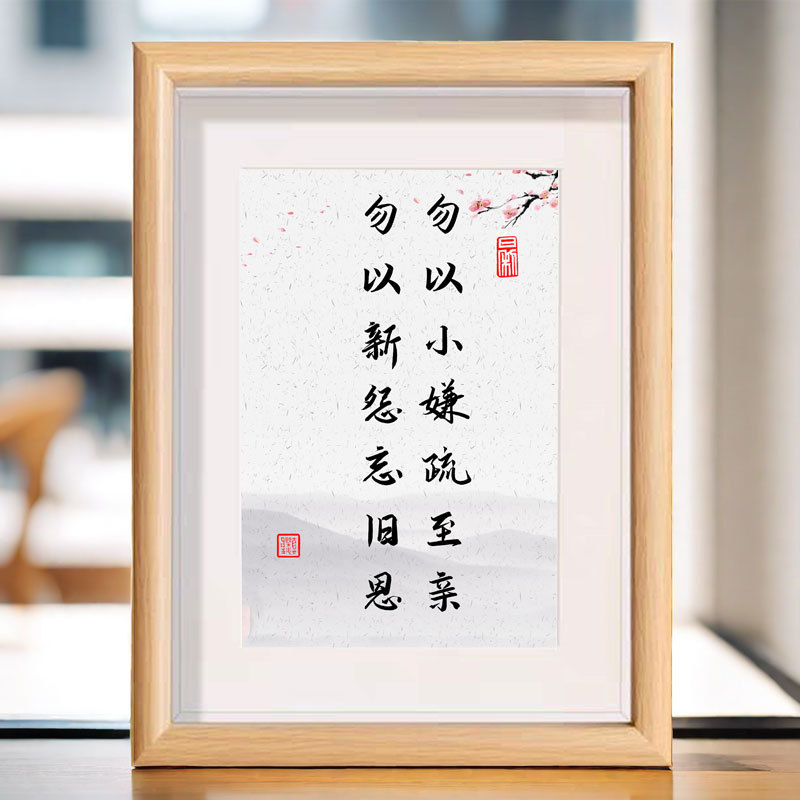 勿以小嫌疏至亲
勿以新怨忘旧恩
日新